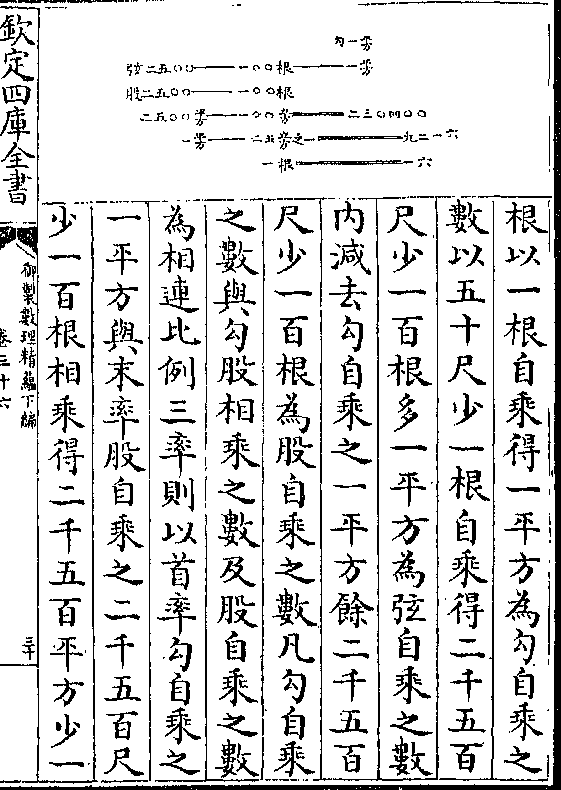 欽定四庫全書
御製數理精蘊下編
卷三十六
三十
勾一平方
弦二五〇〇 一〇〇根 一平方
股二五〇〇 一〇〇根
二五〇〇平方 一〇〇 方 二三〇四〇〇
一平方 二五 方之 九二一六
一根 六
根以一根自乘得一平方為勾自乘之
數以五十尺少一根自乘得二千五百
尺少一百根多一平方為弦自乘之數
内減去勾自乘之一平方餘二千五百
尺少一百根為股自乘之數凡勾自乘
之數與勾股相乘之數及股自乘之數
為相連比例三率則以首率勾自乘之
一平方與末率股自乘之二千五百尺
少一百根相乘得二千五百平方少一